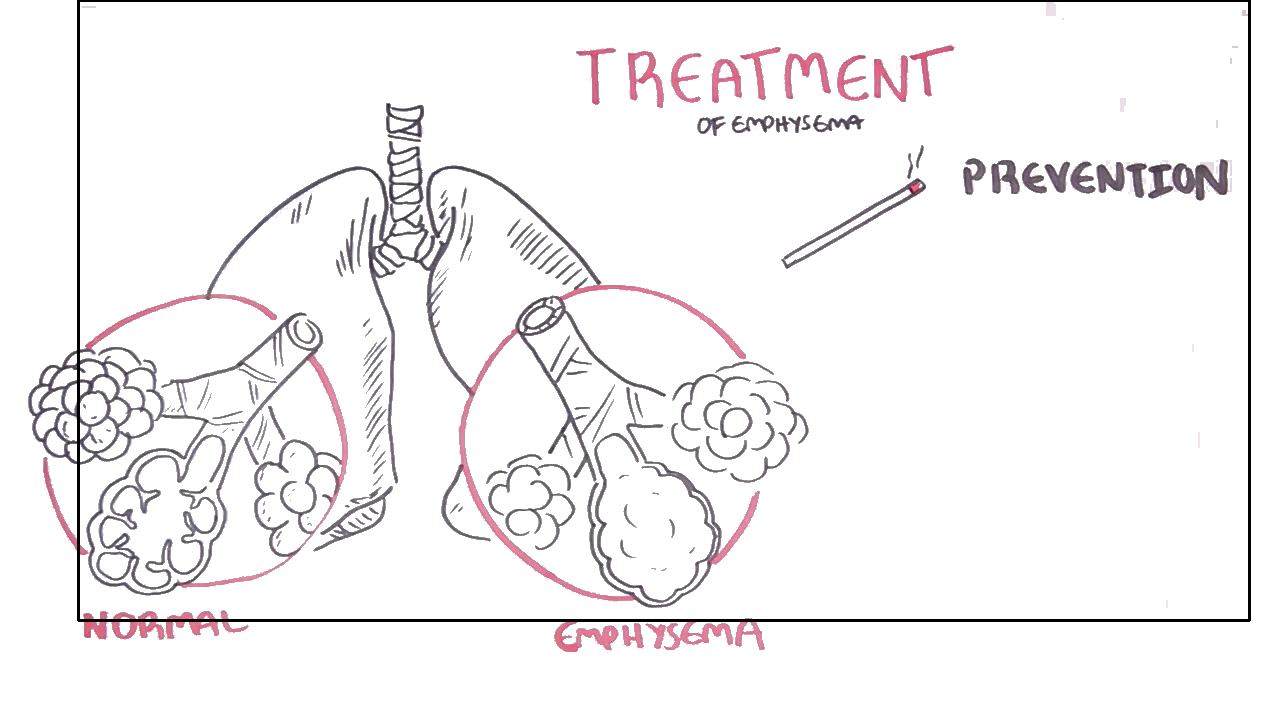 TREATMENT
OF EMPHYSEMA
PREVENTION
NORMAL
EMPHYSEMA